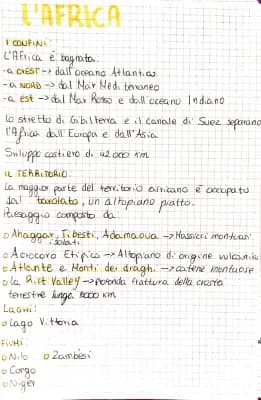 L'AFRICA
I CONFINI:
L'Africa è bagnata.
-a OVEST -> dall'oceano Atlantico
-a NORD -> dal Mar Mediterraneo
-a est -> dal Mar Rosso e dall'oceano Indiano
Lo stretto di Gibilterra e il canale di Suez separano
l'Africa dall'Europa e dall'Asia.
Sviluppo costiero di 42000 km
IL TERRITORIO:
La maggior parte del territorio africano è occupato
dal tavolato, un altopiano piatto.
Paesaggio composto da
Ahaggar, Tibesti, Adamaoua -> Massicci montuosi
isolati
Acrocoro Etipico -> Altopiano di origine vulcanica
Atlante e Monti dei draghi -> catene montuose
la Rift Valley -> profonda frattura della crosta
terrestre lunga km
LAGHI:
Lago Vittoria
FIUMI:
Nilo Zambesi
Congo
Niger